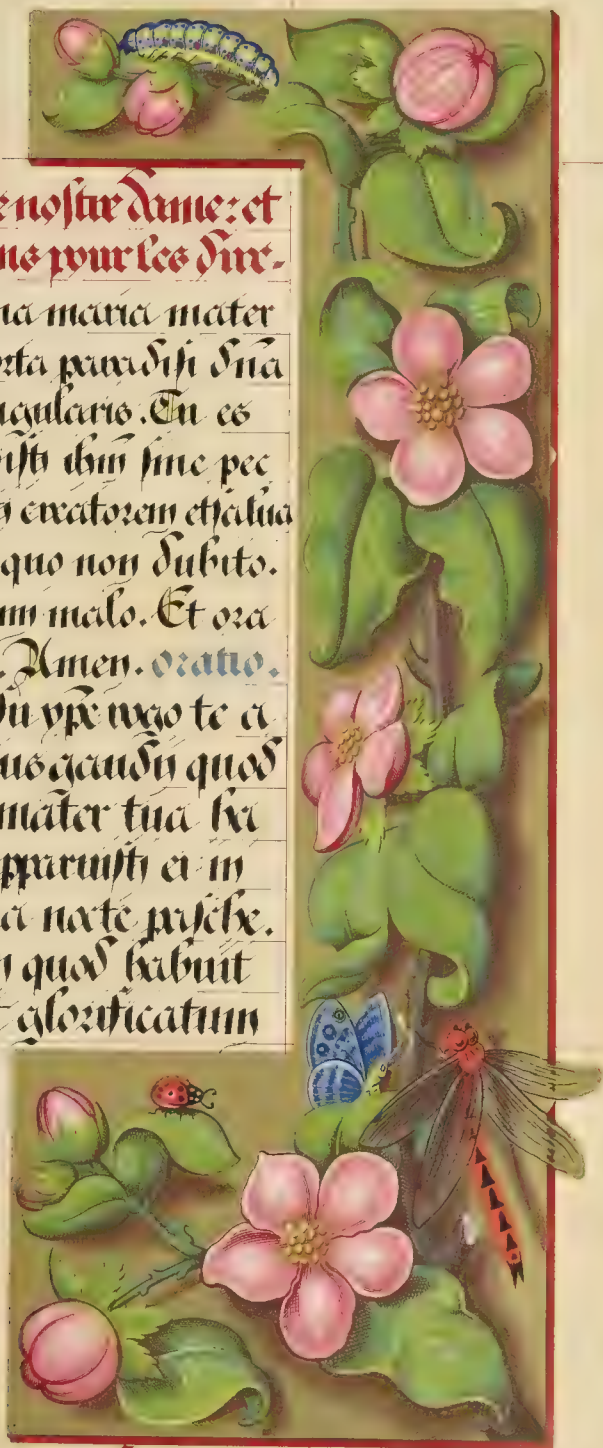 e nostre dame : et
ns pour les dire.
na maria mater
rta paradisi dña
ngularis. Tu es
isti ihm̃ sine pec
creatorem et salua
quo non dubito.
malo. Et ora
. Amen. oratio.
su xp̃e rogo te a
us gaudii quod
mater tua ha
pparuisti ei in
a nocte pasche.
quod habuit
glorificatum